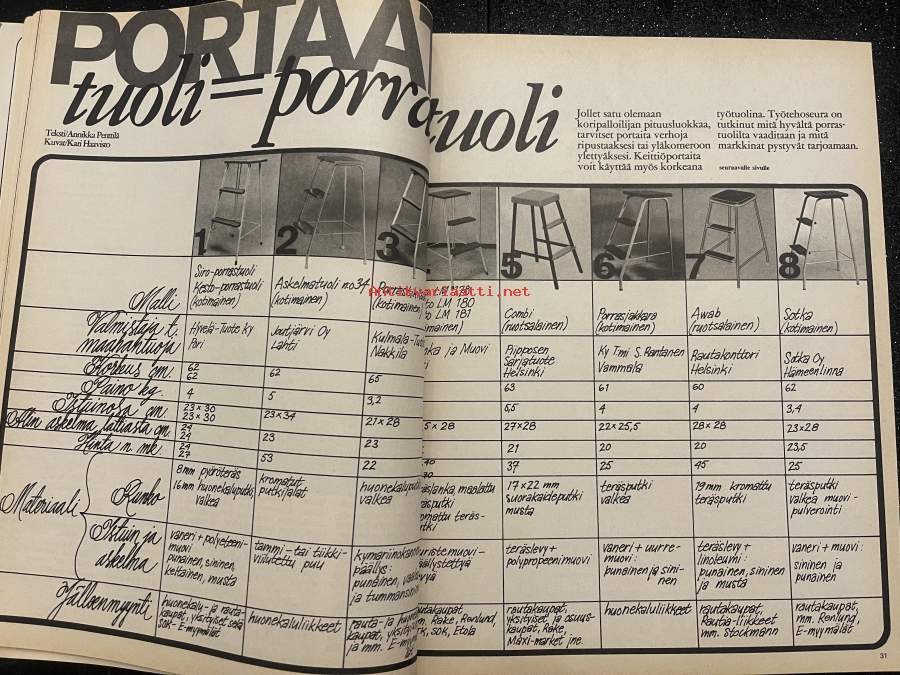 PORTAAT
tuoli=porrastuoli
Teksti/Annikka Penttilä
Kuvat/Kari Haavisto
Jollet satu olemaan
koripalloilijan pituusluokkaa,
tarvitset portaita verhoja
ripustaaksesi tai yläkomeroon
ylettyäksesi. Keittiöportaita
voit käyttää myös korkeana
työtuolina. Työtehoseura on
tutkinut mitä hyvältä porras-
tuolilta vaaditaan ja mitä
markkinat pystyvät tarjoamaan.
seuraavalle sivulle
1 2 3 5 6 7 8
Antikvariaatti.net
Malli
Siro-porrastuoli
Kesto-porrastuoli
(kotimainen)
Askelmatuoli no 34
(kotimainen)
(kotimainen)
LM 180
LM 181
Combi
(ruotsalainen)
Porrasjakkara
(kotimainen)
Awab
(ruotsalainen)
Sotka
(kotimainen)
Valmistaja t.
maahantuoja
Hyvelä-Tuote Ky
Pori
Joutjärvi Oy
Lahti
Kulmala-
Nakkila
ja Muovi
Riipposen
Sarjatuote
Helsinki
Ky Tmi S. Rantanen
Vammala
Rautakonttori
Helsinki
Sotka Oy
Hämeenlinna
Korkeus cm.
62
62
62
65
63
61
60
62
Paino kg.
4
5
3,2
5,5
4
4
3,4
Istuinosa cm.
23 x 30
23 x 30
23 x 34
21 x 28
5 x 28
27x28
22 x 25,5
28 x 28
23 x 28
Alin askelma lattiasta cm.
24
24
23
23
21
20
20
23,5
Hinta n. mk
24
27
53
22
37
25
45
25
Materiaali
Runko
8mm pyöröteräs
16mm huonekaluputki
valkea
kromatut
putkijalat
huonekaluputki
valkea
17 x 22 mm
suorakaideputki
musta
teräsputki
valkea
19 mm kromattu
teräsputki
teräsputki
valkea muovi-
pulverointi
Istuin ja
askelma
vaneri + polyeteeni-
muovi
punainen, sininen,
keltainen, musta
tammi- tai tiikki-
viilutettu puu
päällys:
punainen,
ja tummansininen
teräslevy +
polypropeenimuovi
vaneri + uurre-
muovi:
punainen ja sini-
nen
teräslevy +
linoleumi:
punainen, sininen
ja musta
vaneri + muovi:
sininen ja
punainen
Jälleenmyynti
huonekalu- ja rauta-
kaupat, yksityiset sekä
SOK- E-myymälät
huonekaluliikkeet
rauta- ja
kaupat,
ja mm. E-myymä
Rake, Renlund,
SOK, Etola
rautakaupat,
yksityiset ja osuus-
kaupat, Rake,
Maxi-market jne.
huonekaluliikkeet
rautakaupat,
Rautia-liikkeet
mm. Stockmann
rautakaupat,
mm. Renlund,
E-myymälät
31